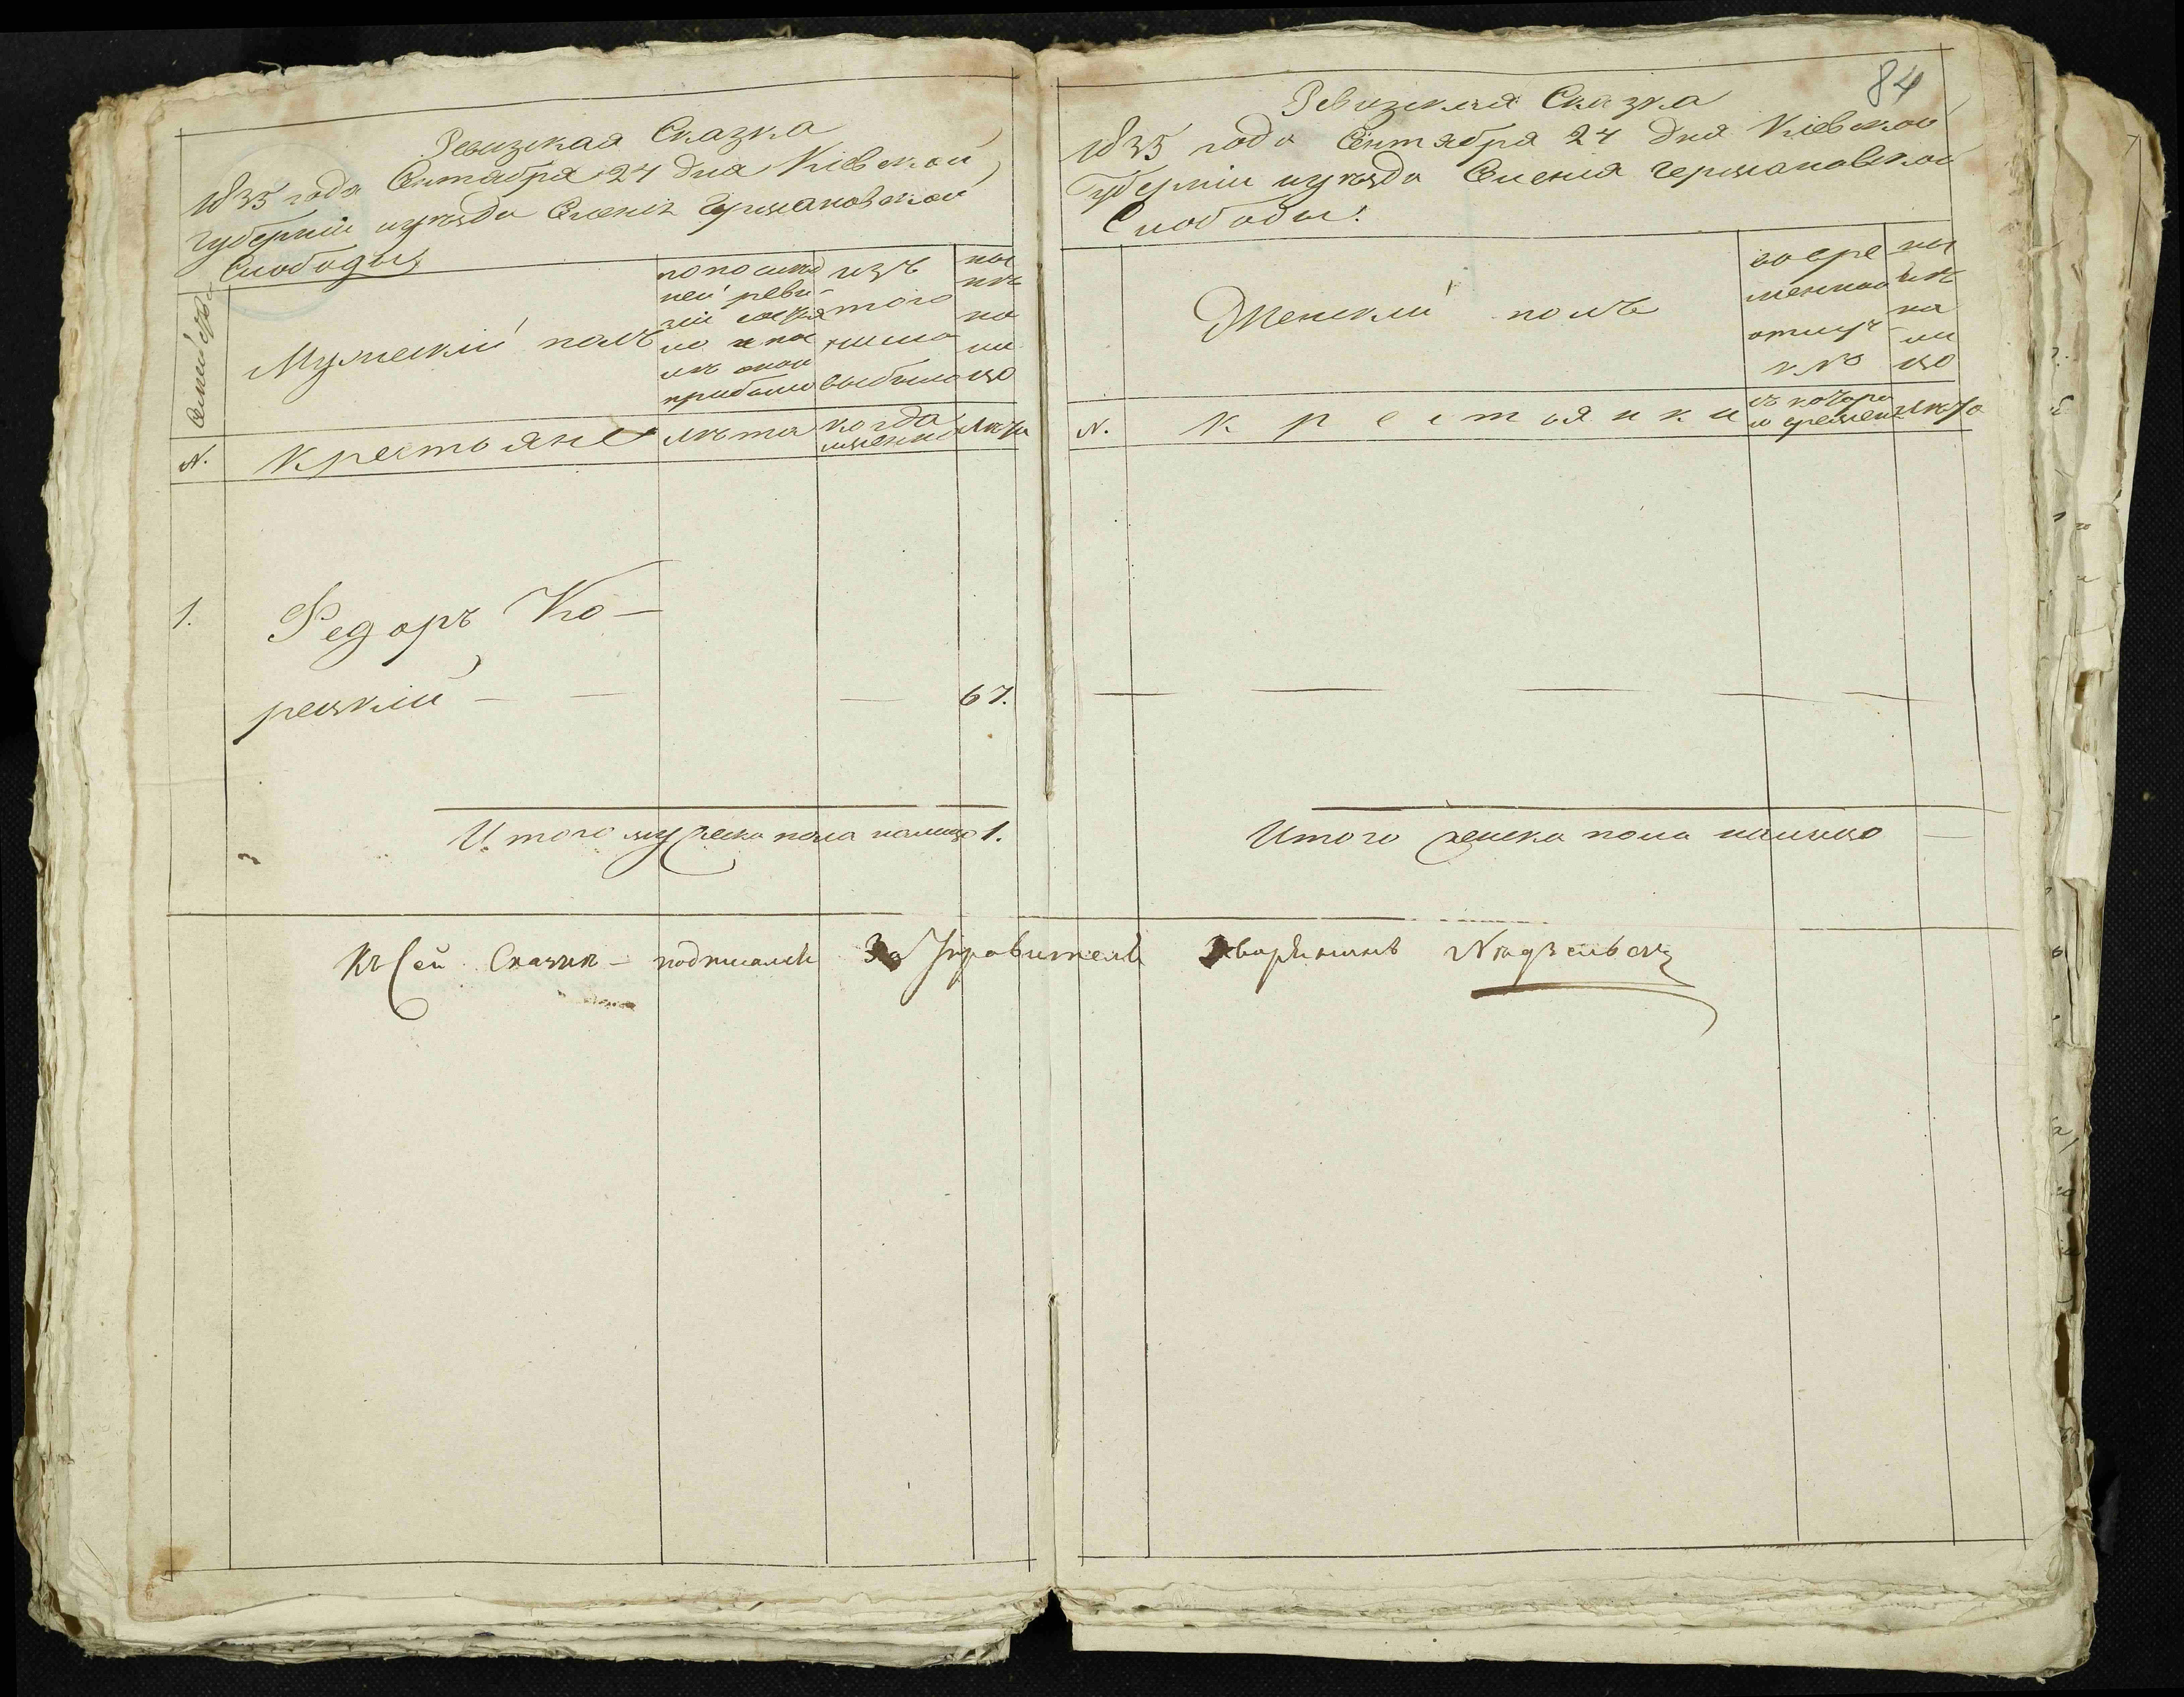 Ревизкая Сказка
1835 года Сентября 24 дня Кіевской
Губерніи и уѣзда Селенія Германовской
Слободы
Мужескій полъ
по послѣд
ней реви-
зіи
прибыло
изъ
того
числа
выбыло
ны
нѣ
на
ли
цо
N.
Крестьяне
лѣта
когда
имянно
лѣта
1.
Федоръ Ко-
рецкій
67.
Итого мужеска пола налицо 1.
84
Ревизская Сказка
1835 года Сентября 24 дня Кіевской
Губерніи и уѣзда Селенія Германовской
Слободы.
Женскій полъ
во вре
менной
отлуч-
кѣ
ны
нѣ
на
ли
цо
N.
Крестьянки
съ котора
го времени
лѣта
Итого женска пола налицо
Къ сей Сказкѣ подписался За Управителя Дворянинъ